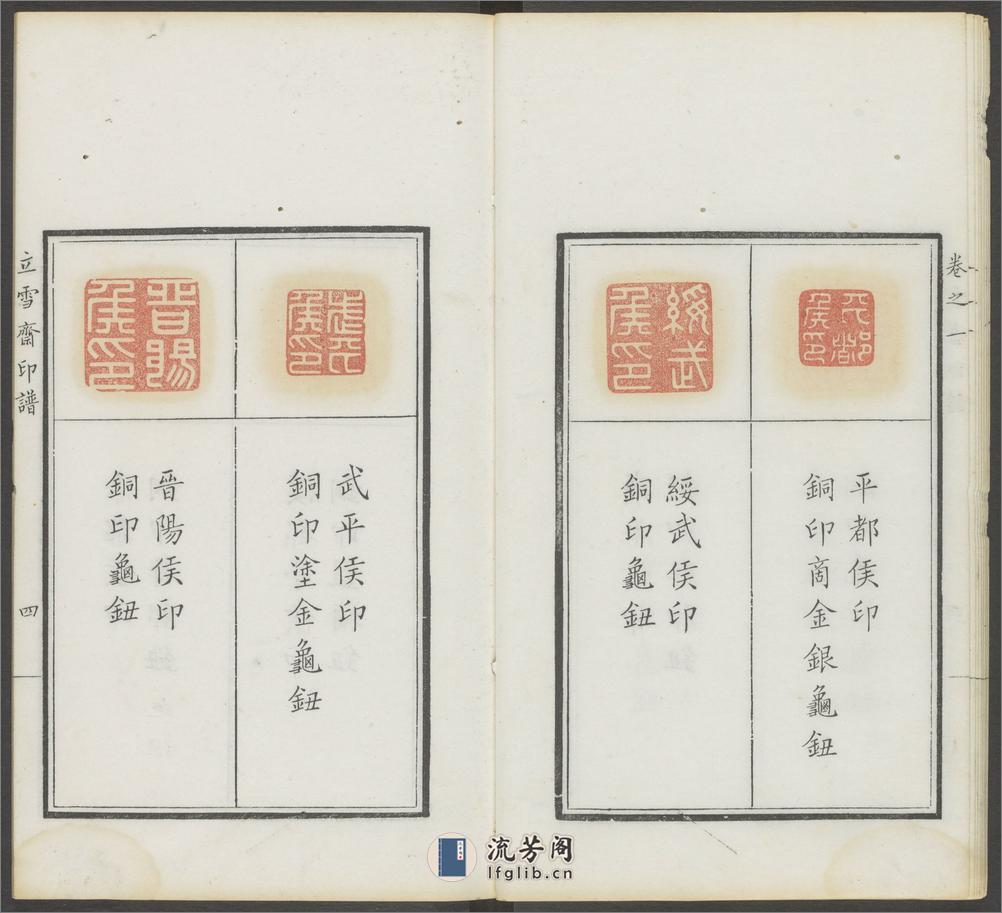 卷之一
平都侯印
平都侯印
銅印商金銀龜鈕
綏武侯印
綏武侯印
銅印龜鈕
武平侯印
武平侯印
銅印塗金龜鈕
晉陽侯印
晉陽侯印
銅印龜鈕
立雪齋印譜
四
流芳阁
lfglib.cn